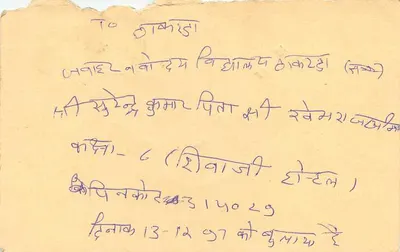 To ठाकरडा
जवाहर नवोदय विद्यालय ठाकरडा
श्री सुरेन्द्र कुमार पिता श्री खेमराज
कक्षा - 6 (शिवाजी होस्टल)
पिनकोड 314029
दिनाक 13-12 97 को बुलाय है